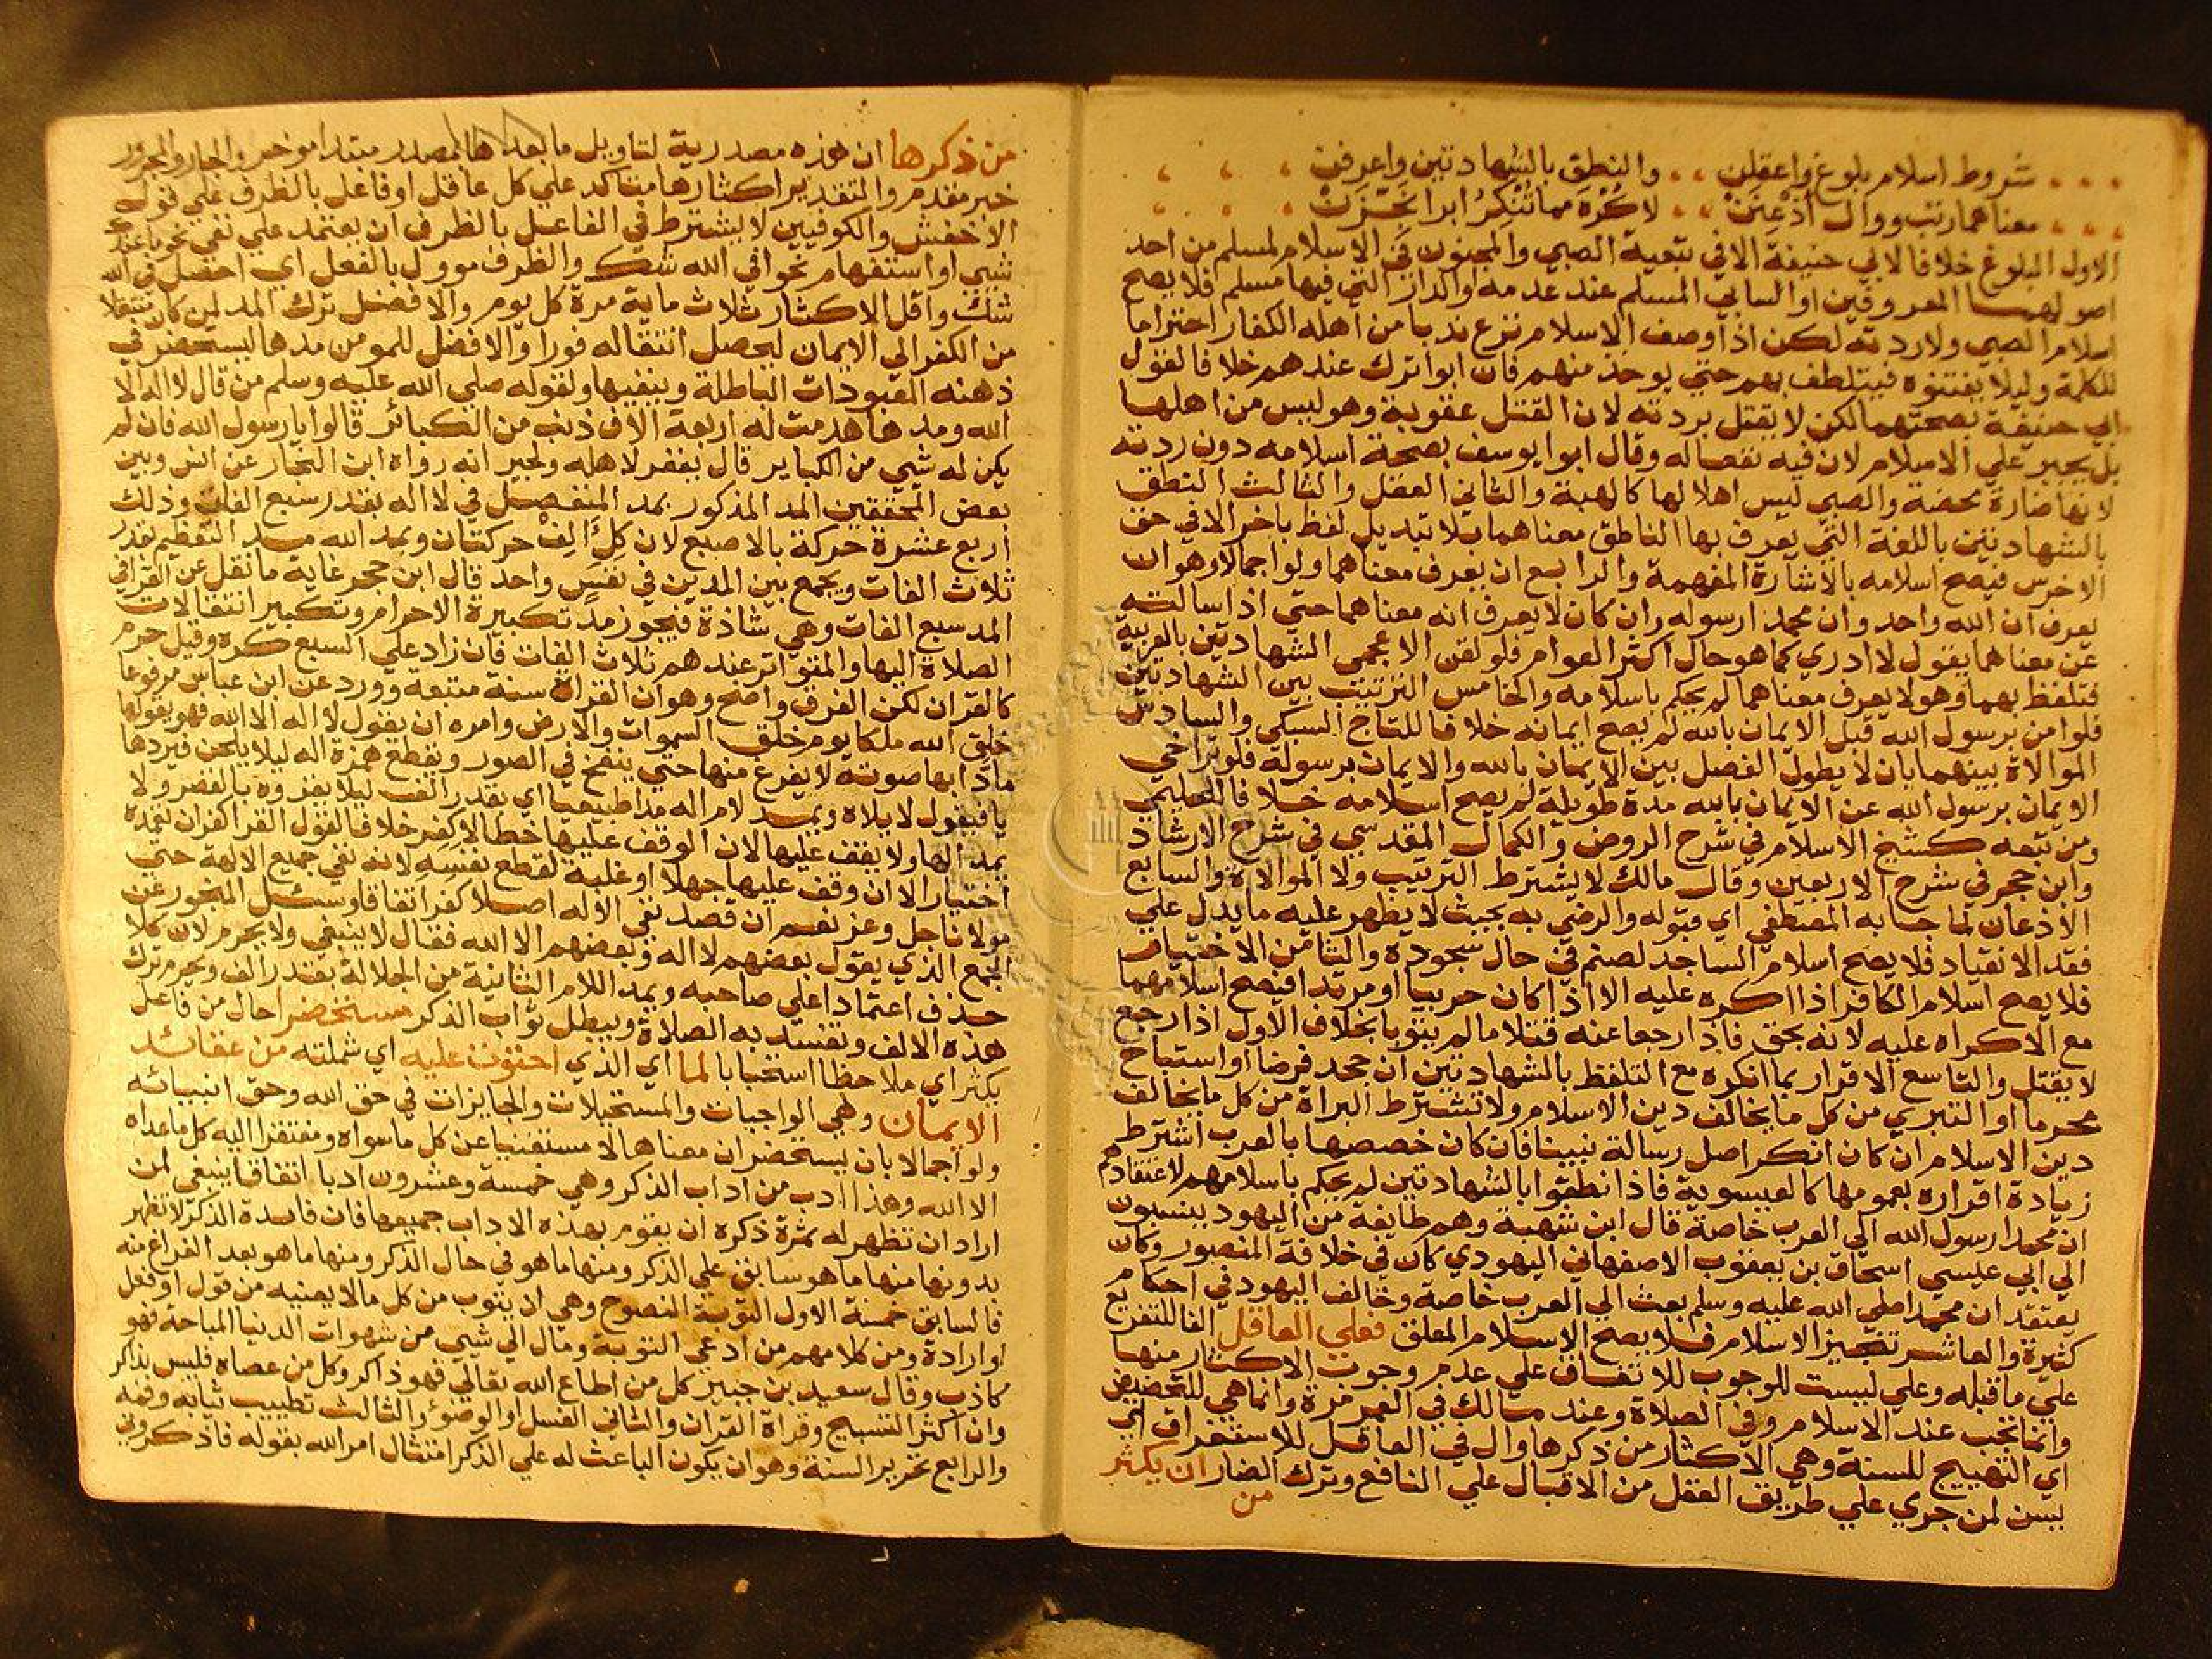 شروط اسلام بلوغ واعقلن والنطق بالشهادتين واعرفن
معناهما رتب ووال اذعنن لا كره مما تنكر ابرا نجزن
الاول البلوغ خلافا لابي حنيفة الا في تبعية الصبي والمجنون في الاسلام لمسلم من احد
اصولهما المعروفين او السابي المسلم عند عدمه او الدار التي فيها مسلم فلا يصح
اسلام الصبي ولا ردته لكن اذا وصف الاسلام نزع ندبا من اهله الكفار احتراما
للكلمة وليلا يفتنوه فيتلطف بهم حتي يوخذ منهم فان ابوا ترك عندهم خلافا لقول
ابي حنيفة بصحتهما لكن لا يقتل بردته لان القتل عقوبة وهو ليس من اهلها
بل يجبر علي الاسلام لان فيه نفعا له وقال ابو يوسف بصحة اسلامه دون ردته
لانها ضارة محضة والصبي ليس اهلا لها كالهبة والثاني العقل والثالث النطق
بالشهادتين باللغة التي يعرف بها الناطق معناهما بلا تبديل لفظ باخر الا في حق
الاخرس فيصح اسلامه بالاشارة المفهمة والرابع ان يعرف معناهما ولو اجمالا وهو ان
يعرف ان الله واحد وان محمدا رسوله وان كان لا يعرف انه معناهما حتي اذا سالته
عن معناهما يقول لا ادري كما هو حال اكثر العوام فلو لقن الاعجمي الشهادتين بالعربية
فتلفظ بهما وهو لا يعرف معناهما لم يحكم باسلامه والخامس الترتيب بين الشهادتين
فلو امن برسول الله قبل الايمان بالله لم يصح ايمانه خلافا للتاج السبكي والسادس
الموالاة بينهما بان لا يطول الفصل بين الايمان بالله والايمان برسوله فلو تراخي
الايمان برسول الله عن الايمان بالله مدة طويلة لم يصح اسلامه خلافا للحليمي
ومن تبعه كشيخ الاسلام في شرح الروض والكمال المقدسي في شرح الارشاد
وابن حجر في شرح الاربعين وقال مالك لا يشترط الترتيب ولا الموالاة والسابع
الاذعان لما جا به المصطفي اي قبوله والرضي به بحيث لا يظهر عليه ما يدل علي
فقد الانقياد فلا يصح اسلام الساجد لصنم في حال سجوده والثامن الاختيار
فلا يصح اسلام الكافر اذا اكره عليه الا اذا كان حربيا او مرتدا فيصح اسلامهما
مع الاكراه عليه لانه بحق فاذا رجعا عنه قتلا ما لم يتوبا بخلاف الاول اذا رجع
لا يقتل والتاسع الاقرار بما انكره مع التلفظ بالشهادتين ان جحد فرضا او استباح
محرما او التبري من كل ما يخالف دين الاسلام ولا تشترط البراة من كل ما يخالف
دين الاسلام ان كان انكر اصل رسالة نبينا فان كان خصصها بالعرب اشترط
زيادة اقراره بعمومها كالعيسوية فاذا نطقوا بالشهادتين لم يحكم باسلامهم لاعتقادهم
ان محمدا رسول الله الي العرب خاصة قال ابن شهبة وهم طائفة من اليهود ينسبون
الي ابي عيسي اسحاق بن يعقوب الاصفهاني اليهودي كان في خلافة المنصور وكان
يعتقد ان محمدا صلي الله عليه وسلم بعث الي العرب خاصة وخالف اليهود في احكام
كثيرة والعاشر تنجيز الاسلام فلا يصح الاسلام المعلق فعلي العاقل الفا للتفريع
علي ما قبله وعلي ليست للوجوب للاتفاق علي عدم وجوب الاكثار منها
وانما تجب عند الاسلام وفي الصلاة وعند مالك في العمر مرة وانما هي للتحضيض
اي التهييج للسنة وهي الاكثار من ذكرها وال في العاقل للاستغراق اي
يسن لمن جري علي طريق العقل من الاقبال علي النافع وترك الضار ان يكثر
من
من ذكرها ان هذه مصدرية لتاويل ما بعدها بمصدر مبتدا موخر والجار والمجرور
خبر مقدم والتقدير اكثارها متاكد علي كل عاقل او فاعل بالظرف علي قول
الاخفش والكوفيين لا يشترط في الفاعل بالظرف ان يعتمد علي نفي نحو ما عندك
شي او استفهام نحو افي الله شك والظرف موول بالفعل اي احصل في الله
شك واقل الاكثار ثلاث ماية مرة كل يوم والافضل ترك المد لمن كان منتقلا
من الكفر الي الايمان ليحصل انتقاله فورا والافضل للمومن مدها ليستحضر في
ذهنه المعبودات الباطلة وينفيها ولقوله صلي الله عليه وسلم من قال لا اله الا
الله ومدها هدمت له اربعة الاف ذنب من الكبائر قالوا يا رسول الله فان لم
يكن له شي من الكباير قال يغفر لاهله ولجيرانه رواه ابن النجار عن انس وبين
بعض المحققين المد المذكور بمد المنفصل في لا اله بقدر سبع الفات وذلك
اربع عشرة حركة بالاصبع لان كل الف حركتان وبمد الله مد التعظيم بقدر
ثلاث الفات ويجمع بين المدين في نفس واحد قال ابن حجر غاية ما نقل عن القرا في
المد سبع الفات وهي شاذة فيجوز مد تكبيرة الاحرام وتكبير انتقالات
الصلاة اليها والمتواتر عندهم ثلاث الفات فان زاد علي السبع كره وقيل حرم
كالقران لكن الفرق واضح وهو ان القراة سنة متبعة وورد عن ابن عباس مرفوعا
خلق الله ملكا يوم خلق السموات والارض وامره ان يقول لا اله الا الله فهو يقولها
مادا بها صوته لا يفرغ منها حتي ينفخ في الصور ويقطع همزة اله ليلا يلحن فيردها
يا فيقول لا يلاه ويمد لام اله مدا طبيعيا اي بقدر الف ليلا يقزوه بالقصر ولا
يمد الها ولا يقف عليها لان الوقف عليها خطا لا كفر خلافا لقول القرا كفران تعمده
اختيارا الا ان وقف عليها جهلا او غلبة لقطع نفسه لانه نفي جميع الالهة حتي
مولانا جل وعز نعم ان قصد نفي الاله اصلا كفر اتفاقا وسئل المنجور عن
الجمع الذي يقول بعضهم لا اله وبعضهم الا الله فقال لا ينبغي ولا يحرم لان كلا
حذف اعتمادا علي صاحبه ويمد اللام الثانية من الجلالة بقدر الف ويحرم ترك
هذه الالف وتفسد به الصلاة ويبطل ثواب الذكر مستحضرا حال من فاعل
يكثر اي ملاحظا استحبابا لما اي الذي احتوت عليه اي شملته من عقائد
الايمان وهي الواجبات والمستحيلات والجايزات في حق الله وحق انبيائه
ولو اجمالا بان يستحضر ان معناها لا مستغنيا عن كل ما سواه ومفتقرا اليه كل ما عداه
الا الله وهذا ادب من اداب الذكر وهي خمسة وعشرون ادبا اتفاقا ينبغي لمن
اراد ان تظهر له ثمرة ذكره ان يقوم بهذه الاداب جميعها فان فائدة الذكر لا تظهر
بدونها منها ما هو سابق علي الذكر ومنها ما هو في حال الذكر ومنها ما هو بعد الفراغ منه
فالسابق خمسة الاول التوبة النصوح وهي ان يتوب من كل ما لا يعنيه من قول او فعل
او ارادة ومن كلامهم من ادعي التوبة ومال الي شي من شهوات الدنيا المباحة فهو
كاذب وقال سعيد بن جبير كل من اطاع الله تعالي فهو ذاكر وكل من عصاه فليس بذاكر
وان اكثر التسبيح وقراة القران والثاني الغسل او الوضوء والثالث تطييب ثيابه وفمه
والرابع تحرير السنة وهو ان يكون الباعث له علي الذكر امتثال امر الله بقوله فاذكروني